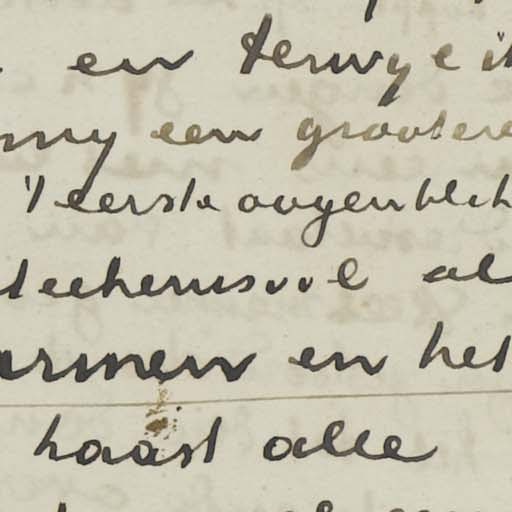 en terwyl ik
my een grootere
't eerste oogenblik
teekenisvol al
armen en het
haast alle